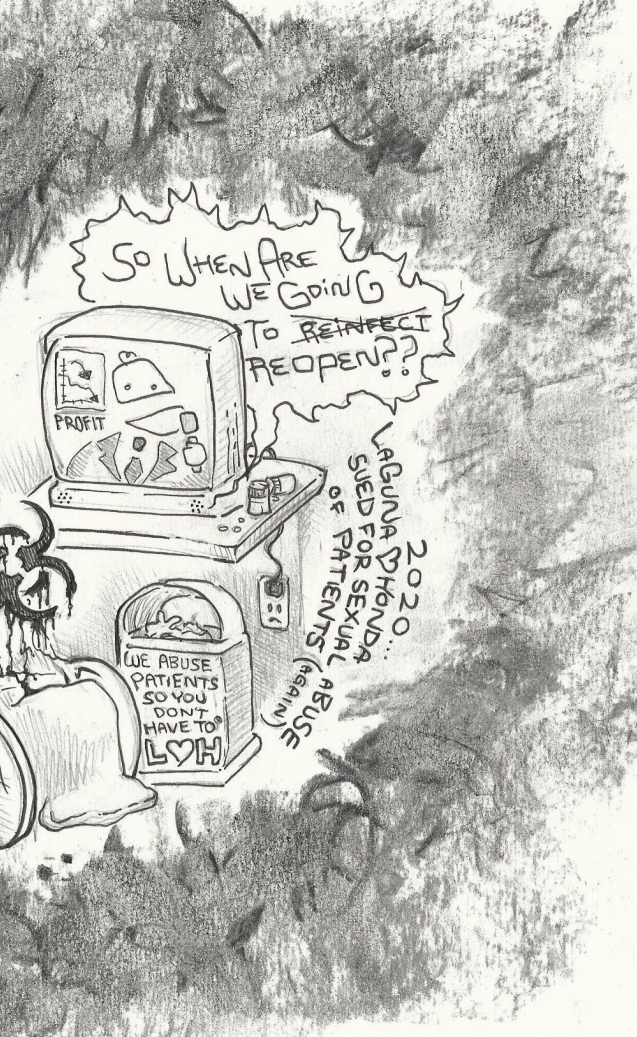 SO WHEN ARE
WE GOING
TO REINFECT
REOPEN??
PROFIT
2020...
LAGUNA ♡ HONDA
SUED FOR SEXUAL ABUSE
OF PATIENTS (AGAIN)
WE ABUSE
PATIENTS
SO YOU
DON'T
HAVE TO®
L♡H